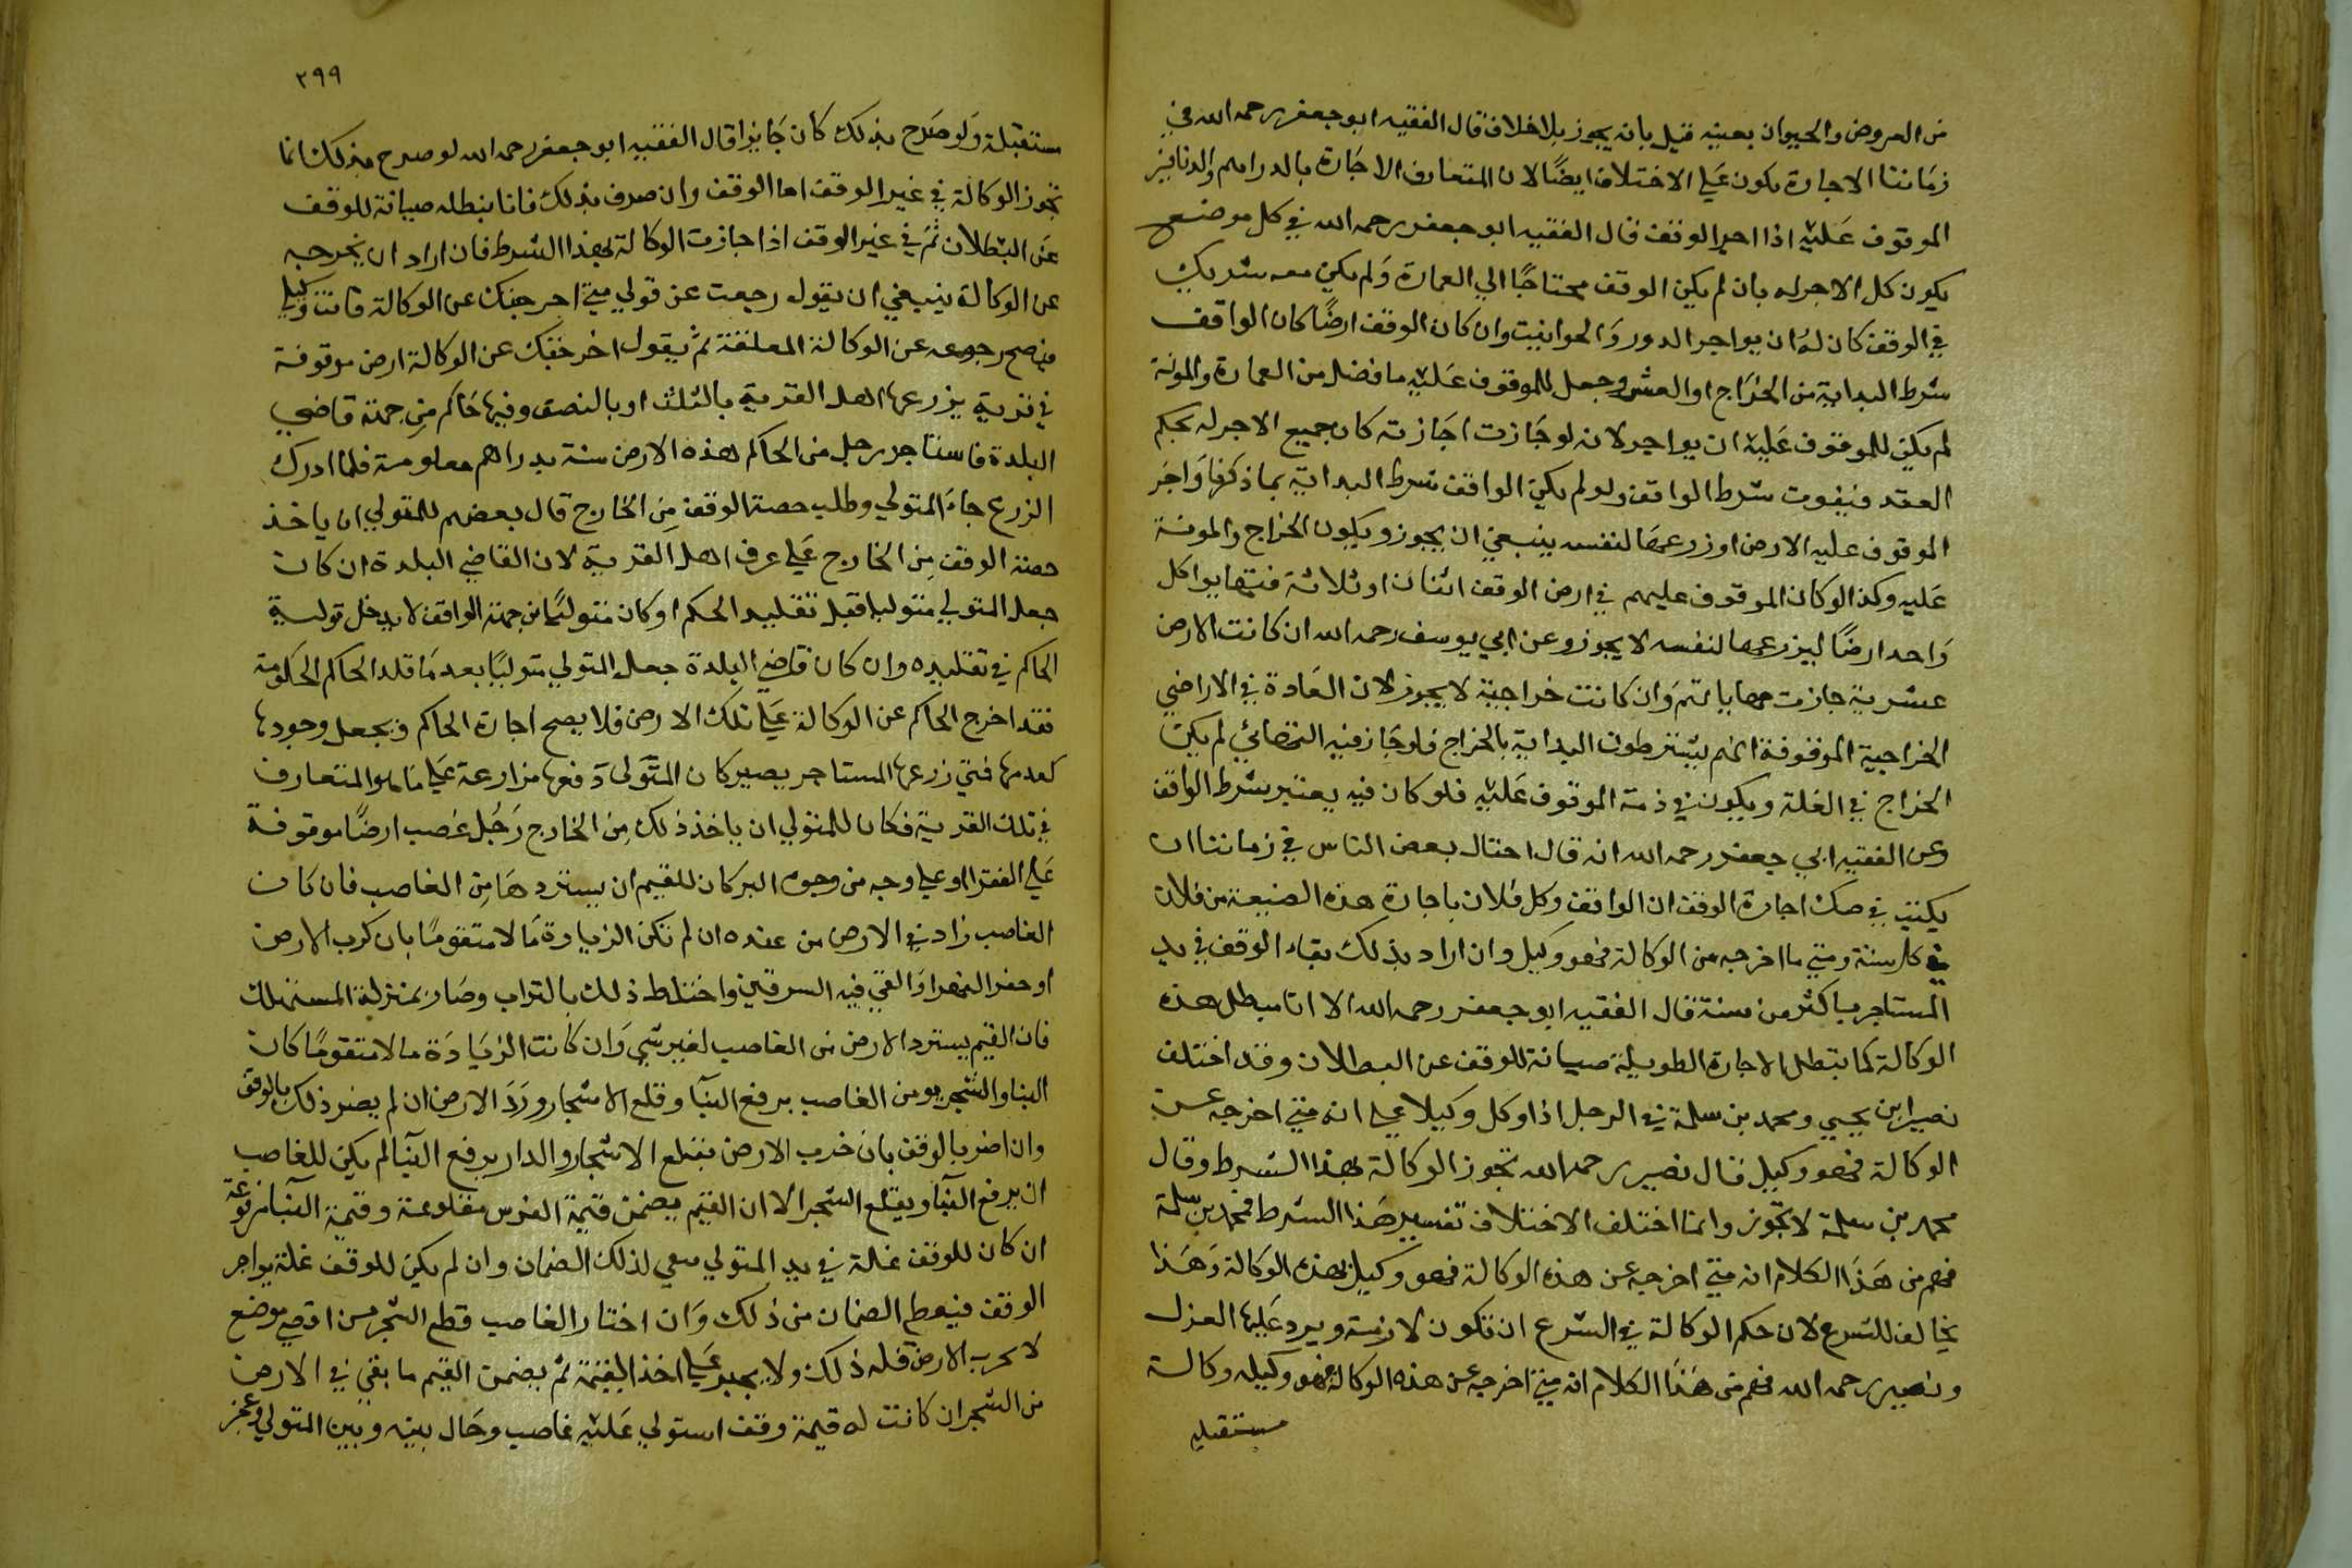 من العروض والحيوان بعينه قيل بانه يجوز بلا خلاف قال الفقيه ابو جعفر رحمه الله في
زماننا الاجارة يكون علي الاختلاف ايضًا لان المتعارف الاجارة بالدراهم والدنانير
الموقوف عليه اذا اجر الوقف قال الفقيه ابو جعفر رحمه الله في كل موضع
يكون كل الاجر له بان لم يكن الوقف محتاجًا الي العمارة ولم يكن معه شريك
في الوقف كان له ان يواجر الدور والحوانيت وان كان الوقف ارضًا كان الواقف
شرط البداية من الخراج او العشر وجعل للموقوف عليه ما فضل من العمارة والمونة
لم يكن للموقوف عليه ان يواجر لانه لو جازت اجازته كان جميع الاجر له بحكم
العقد فيفوت شرط الواقف ولو لم يكن الواقف شرط البداية بما ذكرنا واجر
الموقوف عليه الارض او زرعها لنفسه ينبغي ان يجوز ويكون الخراج والمونة
عليه وكذا لو كان الموقوف عليهم في ارض الوقف اثنان او ثلاثة فتهايوا كل
واحد ارضًا ليزرعها لنفسه لا يجوز وعن ابي يوسف رحمه الله ان كانت الارض
عشرية جازت مهاياتهم وان كانت خراجية لا يجوز لان العادة في الاراضي
الخراجية الموقوفة انهم يشترطون البداية بالخراج فلو جاز فيه التهائي لم يكن
الخراج في الغلة ويكون في ذمة الموقوف عليه فلو كان فيه يعتبر شرط الواقف
وعن الفقيه ابي جعفر رحمه الله انه قال احتال بعض الناس في زماننا ان
يكتب في صك اجارة الوقف ان الواقف وكل فلان باجارة هذه الضيعة من فلان
في كل سنة ومتي ما اخرجه من الوكالة فهو وكيل وان اراد بذلك بقاء الوقف في يد
المستاجر باكثر من سنة قال الفقيه ابو جعفر رحمه الله الا انا نبطل هذه
الوكالة كما تبطل الاجارة الطويلة صيانة للوقف عن البطلان وقد اختلف
نصير ابن يحيي ومحمد بن سلمة في الرجل اذا وكل وكيلا علي انه متي اخرجه عن
الوكالة فهو وكيل قال نصير رحمه الله تجوز الوكالة بهذا الشرط وقال
محمد بن سلمة لا تجوز وانما اختلف الاختلاف تفسير هذا الشرط فمحمد بن سلمة
فهم من هذا الكلام انه متي اخرجه عن هذه الوكالة فهو وكيل بهذه الوكالة وهذا
يخالف للشرع لان حكم الوكالة في الشرع ان تكون لازمة ويرد عليها العزل
ونصير رحمه الله فهم من هذا الكلام انه متي اخرجه عن هذه الوكالة فهو وكيله وكالة
مستقبله
٢٩٩
مستقبلة ولو صرح بذلك كان جايزا قال الفقيه ابو جعفر رحمه الله لو صرح بذلك انما
تجوز الوكالة في غير الوقف اما الوقف وان صرف بذلك فانا نبطله صيانة للوقف
عن البطلان ثم في غير الوقف اذا جازت الوكالة بهذا الشرط فان اراد ان يخرجه
عن الوكالة ينبغي ان يقول رجعت عن قولي متي اخرجتك عن الوكالة فانت وكيلي
فيصح رجوعه عن الوكالة المعلقة ثم يقول اخرجتك عن الوكالة ارض موقوفة
في قرية يزرعها اهل القرية بالثلث او بالنصف وفيها حاكم من جهة قاضي
البلدة فاستاجر رجل من الحاكم هذه الارض سنة بدراهم معلومة فلما ادرك
الزرع جاء المتولي وطلب حصة الوقف من الخارج قال بعضهم للمتولي ان ياخذ
حصة الوقف من الخارج علي عرف اهل القرية لان القاضي البلدة ان كان
جعل المتولي متوليا قبل تقليد الحكم او كان متوليًا من جهة الواقف لا يدخل تولية
الحاكم في تقليده وان كان قاضي البلدة جعل المتولي متوليًا بعد ما قلد الحاكم الحكومة
فقد اخرج الحاكم عن الوكالة علي تلك الارض فلا يصح اجارة الحاكم ويجعل وجودها
كعدمها فمتي زرعها المستاجر يصير كان المتولي دفعها مزارعة علي ما هو المتعارف
في تلك القرية فكان للمتولي ان ياخذ ذلك من الخارج رجل غصب ارضًا موقوفة
علي الفقرا او علي وجه من وجوه البر كان للقيم ان يستردها من الغاصب فان كان
الغاصب زاد في الارض من عنده ان لم تكن الزيادة مالا متقومًا بان كرب الارض
او حفر النهر او القي فيه السرقين واختلط ذلك بالتراب وصار بمنزلة المستهلك
فان القيم يسترد الارض من الغاصب لغير شي وان كانت الزيادة مالا متقومًا كان
البنا والشجر يومن الغاصب برفع البنآ وقلع الاشجار ورد الارض ان لم يضر ذلك بالوقف
وان اضر بالوقف بان خرب الارض بقلع الاشجار والدار برفع البنآ لم يكن للغاصب
ان يرفع البنآ ويقلع الشجر الا ان القيم يضمن قيمة الغرس مقلوعة وقيمة البنآ مرفوعة
ان كان للوقف غلة في يد المتولي يعي لذلك الضمان وان لم يكن للوقف غلة يواجر
الوقف فيعطي الضمان من ذلك وان اختار الغاصب قطع الشجر من اقصي موضع
لا يخرب الارض فله ذلك ولا يجبر علي اخذ القيمة ثم يضمن القيم ما بقي في الارض
من الشجر ان كانت له قيمة وقف استولي عليه غاصب وحال بينه وبين المتولي وعجز